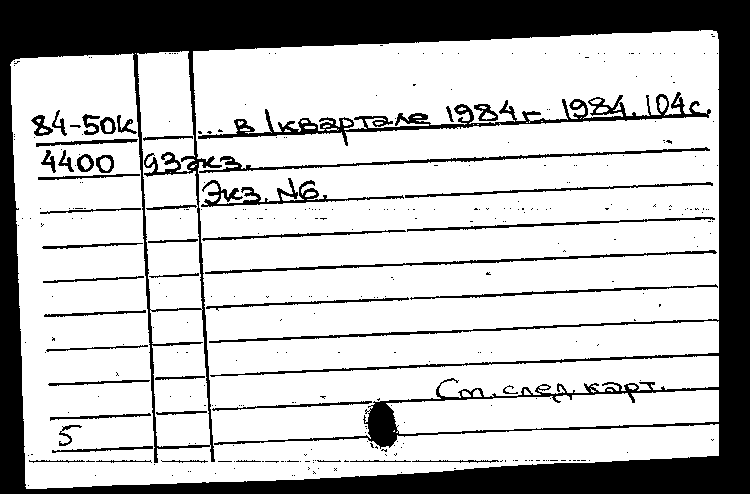 84-50к ... в I квартале 1984 г. 1984. 104 с.
4400 93 экз.
Экз. N6.
См. след. карт.
5